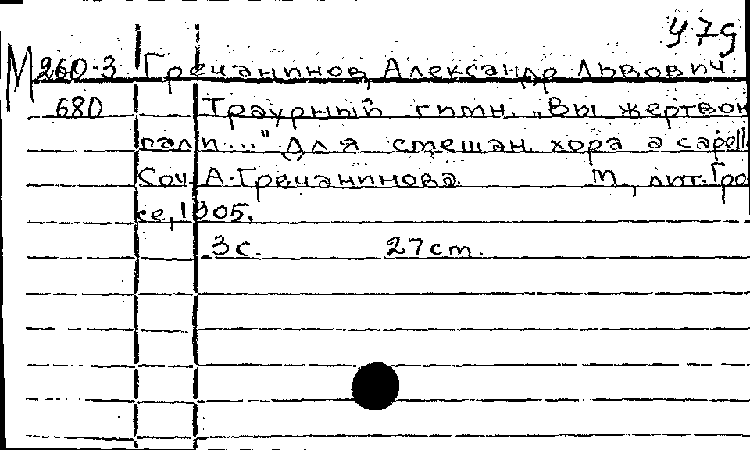 479
М 260-3 Гречанинов, Александр Львович
680 Траурный гимн. „Вы жертвою
пали..." Для смешан. хора a capell
Соч. А. Гречанинова М., лит. Гро
се, 1905.
3 с. 27 см.